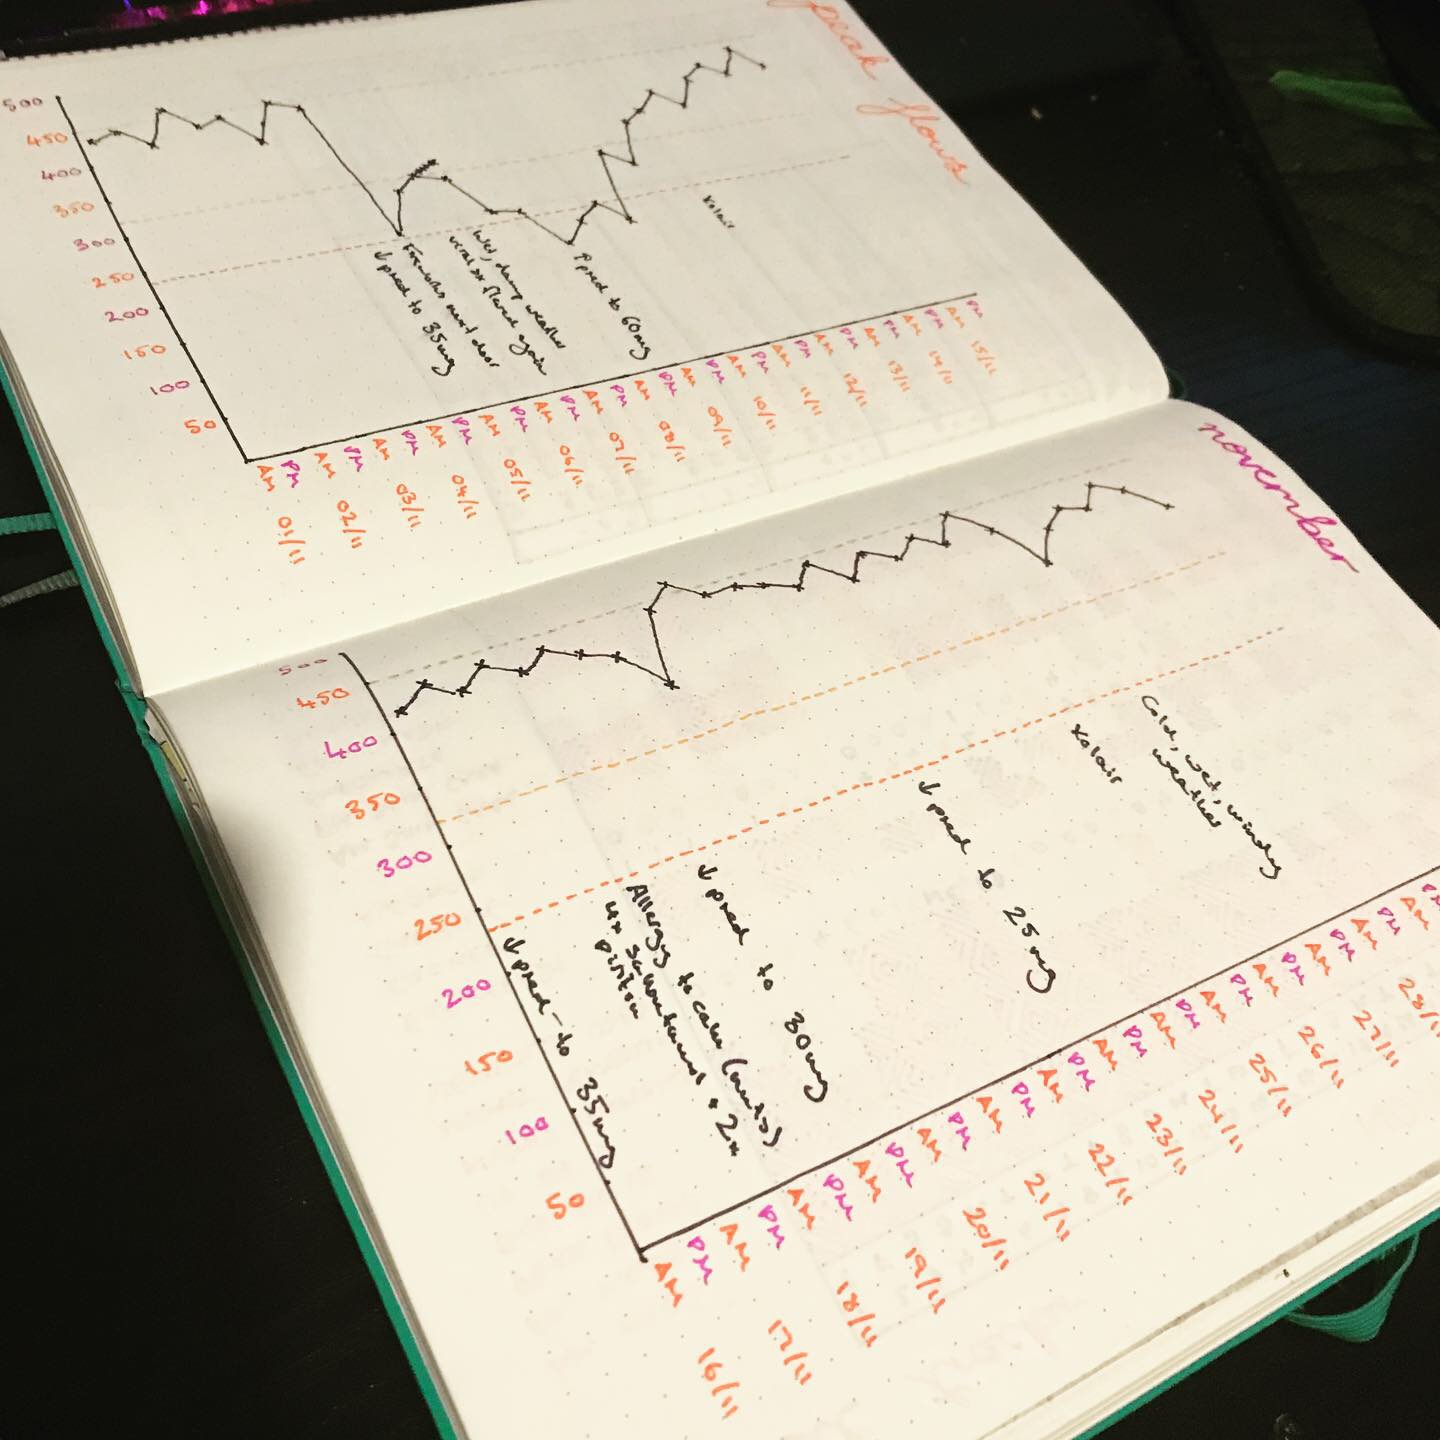 peak flows
500
450
400
350
300
250
200
150
100
50
↓ pred to 35mg
Fireworks next door
Wet, damp weather
flared again
↑ pred to 60mg
Xolair
AM PM AM PM AM PM AM PM AM PM AM PM AM PM AM PM AM PM AM PM AM PM AM PM AM PM AM PM AM PM
01/11 02/11 03/11 04/11 05/11 06/11 07/11 08/11 09/11 10/11 11/11 12/11 13/11 14/11 15/11
november
500
450
400
350
300
250
200
150
100
50
↓ pred to 35mg
Allergy to cake (nuts)
4x salbutamol + 2x
piriton
↓ pred to 30mg
↓ pred to 25mg
Xolair
Cold, wet, windy
weather
AM PM AM PM AM PM AM PM AM PM AM PM AM PM AM PM AM PM AM PM AM PM AM PM AM PM
16/11 17/11 18/11 19/11 20/11 21/11 22/11 23/11 24/11 25/11 26/11 27/11 28/11